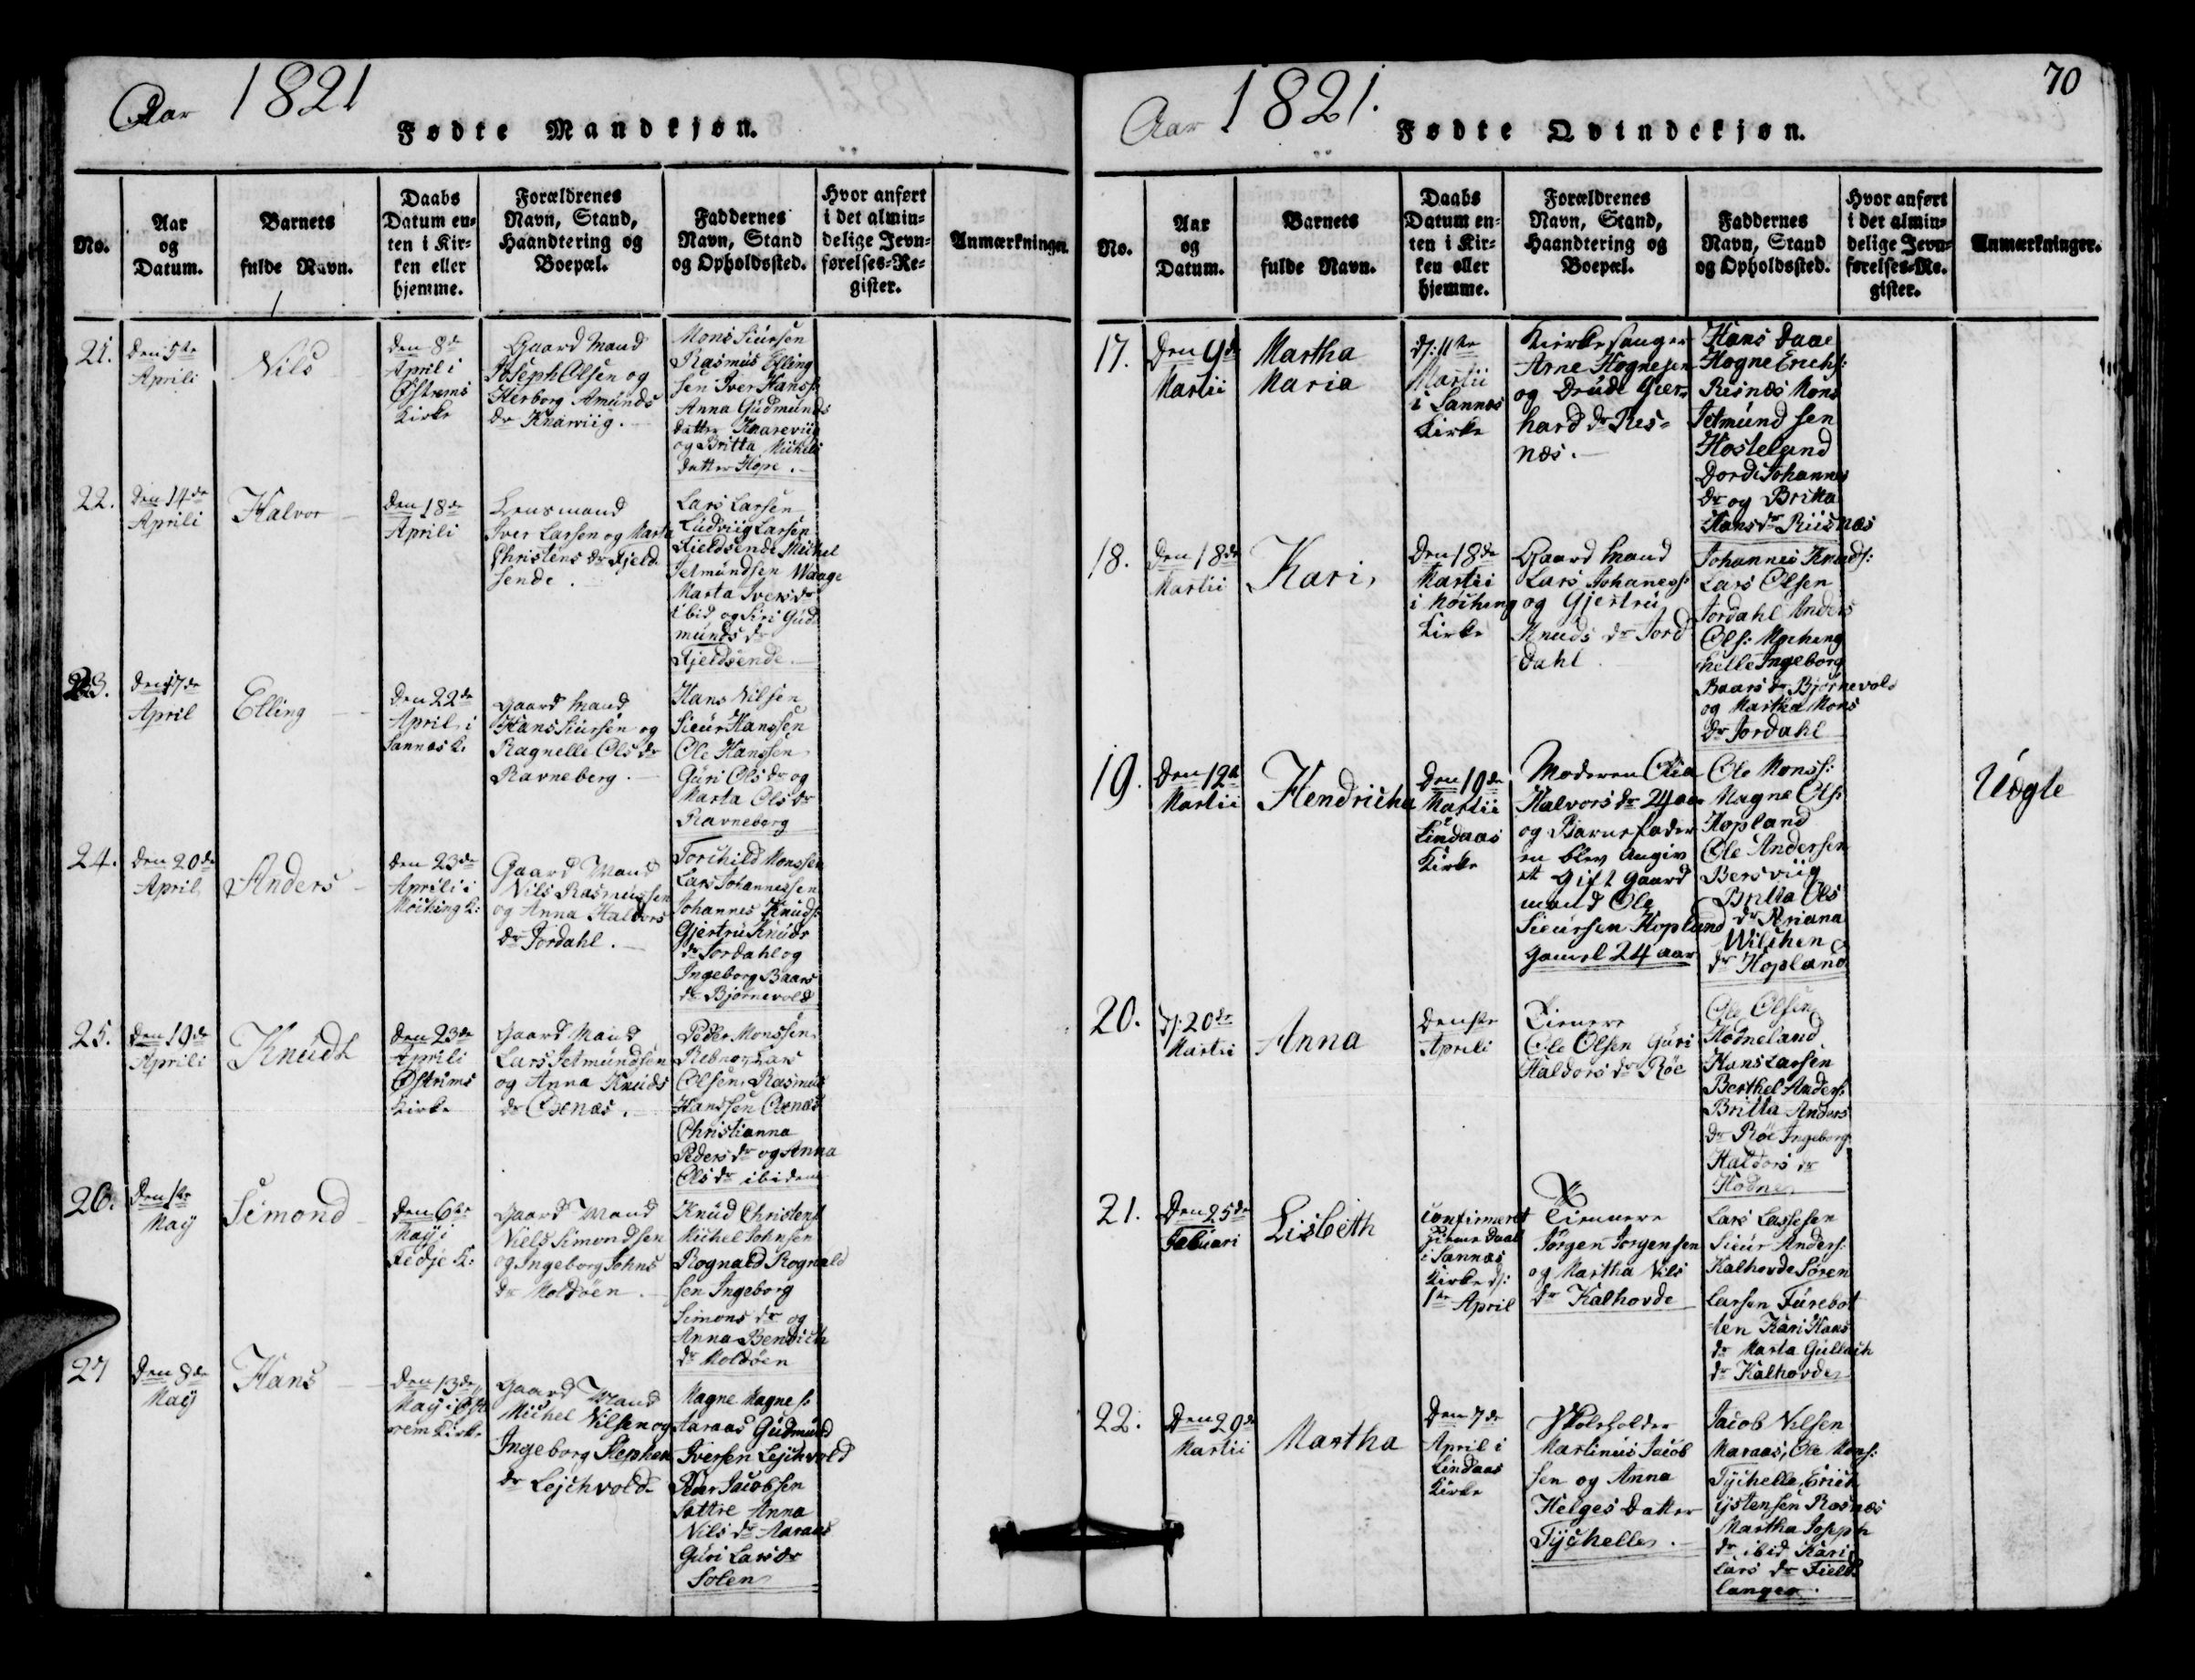 Aar 1821
Fødte Mandkjøn.
No.
Aar
og
Datum.
Barnets
fulde Navn.
Daabs
Datum en-
ten i Kir-
ken eller
hjemme.
Forældrenes
Navn, Stand,
Haandtering og
Boepæl.
Faddernes
Navn, Stand
og Opholdssted.
Hvor anført
i det almin-
delige Jevn-
førelses-Re-
gister.
Anmærkninger.
21.
Den 5te
Aprili
Nils
Den 8de
April i
Østrems
Kirke
Gaard Mand
Joseph Olsen og
Herborg Amunds
dr Knarviig.
Mons Siursen
Rasmus Elling
sen Iver Hanss:
Anna Gudmunds
datter Knareviig
og Britta Michels
datter Hope.
22.
Den 14de
Aprili
Halvor
Den 18de
Aprili
Lensmand
Iver Larsen og Marta
Christens dr Fjeld
sende.
Lars Larsen
Ludviig Larsen
Fieldsende Michel
Jetmundsen Waage
Marta Ivers dr
ibid og Siri Gud
munds dr
Fjeldsende.
23.
Den 17de
April
Elling
Den 22de
April i
Sannæs K.
Gaard Mand
Hans Siursen og
Ragnelle Ols dr
Ravneberg.
Hans Nilsen
Sieur Hanssen
Ole Hanssen
Guri Ols dr og
Marta Ols dr
Ravneberg
24.
Den 20de
April
Anders
Den 23de
Aprili i
Mocking K:
Gaard Mand
Nils Rasmussen
og Anna Halvors
dr Jordahl.
Torchild Monssen
Lars Johannessen
Johannes Knuds:
Gjertru Knuds
dr Jordahl og
Ingeborg Baars
dr Bjørnevold
25.
Den 19de
Aprili
Knudt
Den 23de
Aprili
Østrems
Kirke
Gaard Mand
Lars Jetmundsen
og Anna Knuds
dr Oxnæs.
Peder Monssen
Lars
Olsen, Rasmus
Hanssen Oxnæs
Christianna
Peders dr og Anna
Ols dr ibidem
26.
Den 1te
May
Simond
Den 6te
May i
Fedje K:
Gaard Mand
Niels Simondsen
og Ingeborg Johns
dr Moldøen.
Knud Christens
Michel Johnsen
Rognald Rognald
sen Ingeborg
Simons dr og
Anna Bendich
dr Moldøen
27
Den 8de
May
Hans
Den 13de
May i Øst
rem Kirke
Gaard Mand
Michel Nilsen og
Ingeborg Stephen
dr Lejchvold
Magne Magnes:
Aaraas Gudmund
Iversen Lejchvold
Jacobsen
Sættre Anna
Nils dr Aaraas
Guri Lars dr
Solen
70
Aar 1821.
Fødte Qvindekjøn.
No.
Aar
og
Datum.
Barnets
fulde Navn.
Daabs
Datum en-
ten i Kir-
ken eller
hjemme.
Forældrenes
Navn, Stand,
Haandtering og
Boepæl.
Faddernes
Navn, Stand
og Opholdssted.
Hvor anført
i det almin-
delige Jevn-
førelses-Re-
gister.
Anmærkninger.
17.
Den 9de
Martii
Martha
Maria
d: 11te
Martii
i Sannæs
Kirke
Kirkesanger
Arne Hognesen
og Drude Gier-
hard dr Res-
næs.
Hans Daae
Hogne Erichs:
Resnæs Mons
Jetmundsen
Hosteland
Dordi Johannes
dr og Britta
Hans dr Riisnæs
18.
Den 18de
Martii
Kari
Den 18de
Martii
i Mocking
Kirke
Gaard Mand
Lars Johaness:
og Gjertru
Knuds dr Jord
dahl.
Johannes Knuds:
Lars Olsen
Jordahl Anders
Ols:
Ingeborg
Baars dr Bjørnevold
og Martha Mons
dr Jordahl
19.
Den 12te
Martii
Hendricha
Den 19de
Martii
i
Lindaas
Kirke
Moderen
Halvors dr 24 aar
og Barnefader
en blev angiv
et gift Gaard
mand Ole
Sieursen Hopland
gamel 24 aar
Ole Monss:
Magne Ols:
Hopland
Ole Andersen
Bersviig
Britta Ols
dr Ariana
Wilchen
dr Hopland
Uægte
20.
d: 20de
Martii
Anna
Den 1te
Aprili
Tienere
Ole Olsen Guri
Haldors dr Røe
Ole Olsen
Hodneland
Hans Larsen
Berthel Anders:
Britta Anders
dr Røe Ingeborg
Haldors dr
Hodne
21.
Den 25de
Febuari
Lisbeth
Confirmeret
Hieme Daab
i Sannæs
Kirke d:
1te April
Tiennere
Jørgen Jorgensen
og Martha Nils
dr Kalhovde
Lars Lassesen
Sieur Anders:
Kalhovde Søren
Larsen Furebot
ten Kari Hans
dr Marta Gullach
dr Kalhovde
22.
Den 29de
Martii
Martha
Den 7de
April i
Lindaas
Kirke
Skoleholder
Martinus Jacob
sen og Anna
Helges Datter
Tychelle.
Jacob Nilsen
Maraas, Ole Mons:
Tychelle, Erich
Ystensen Rosnæs
Martha Joseph
dr ibid Kari
Lars dr Field
langer.